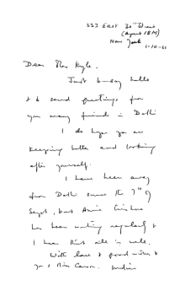 333 EAST
New York
Dear Mrs Kyle,
Just Sunday hello
& to send greetings from
your many friends in Delhi
I do hope you are
keeping better and looking
after yourself.
I have been away
from Delhi since the 7th of
Sept, but
has been writing regularly &
I hear that all is well.
With love & good wishes to
you & Miss